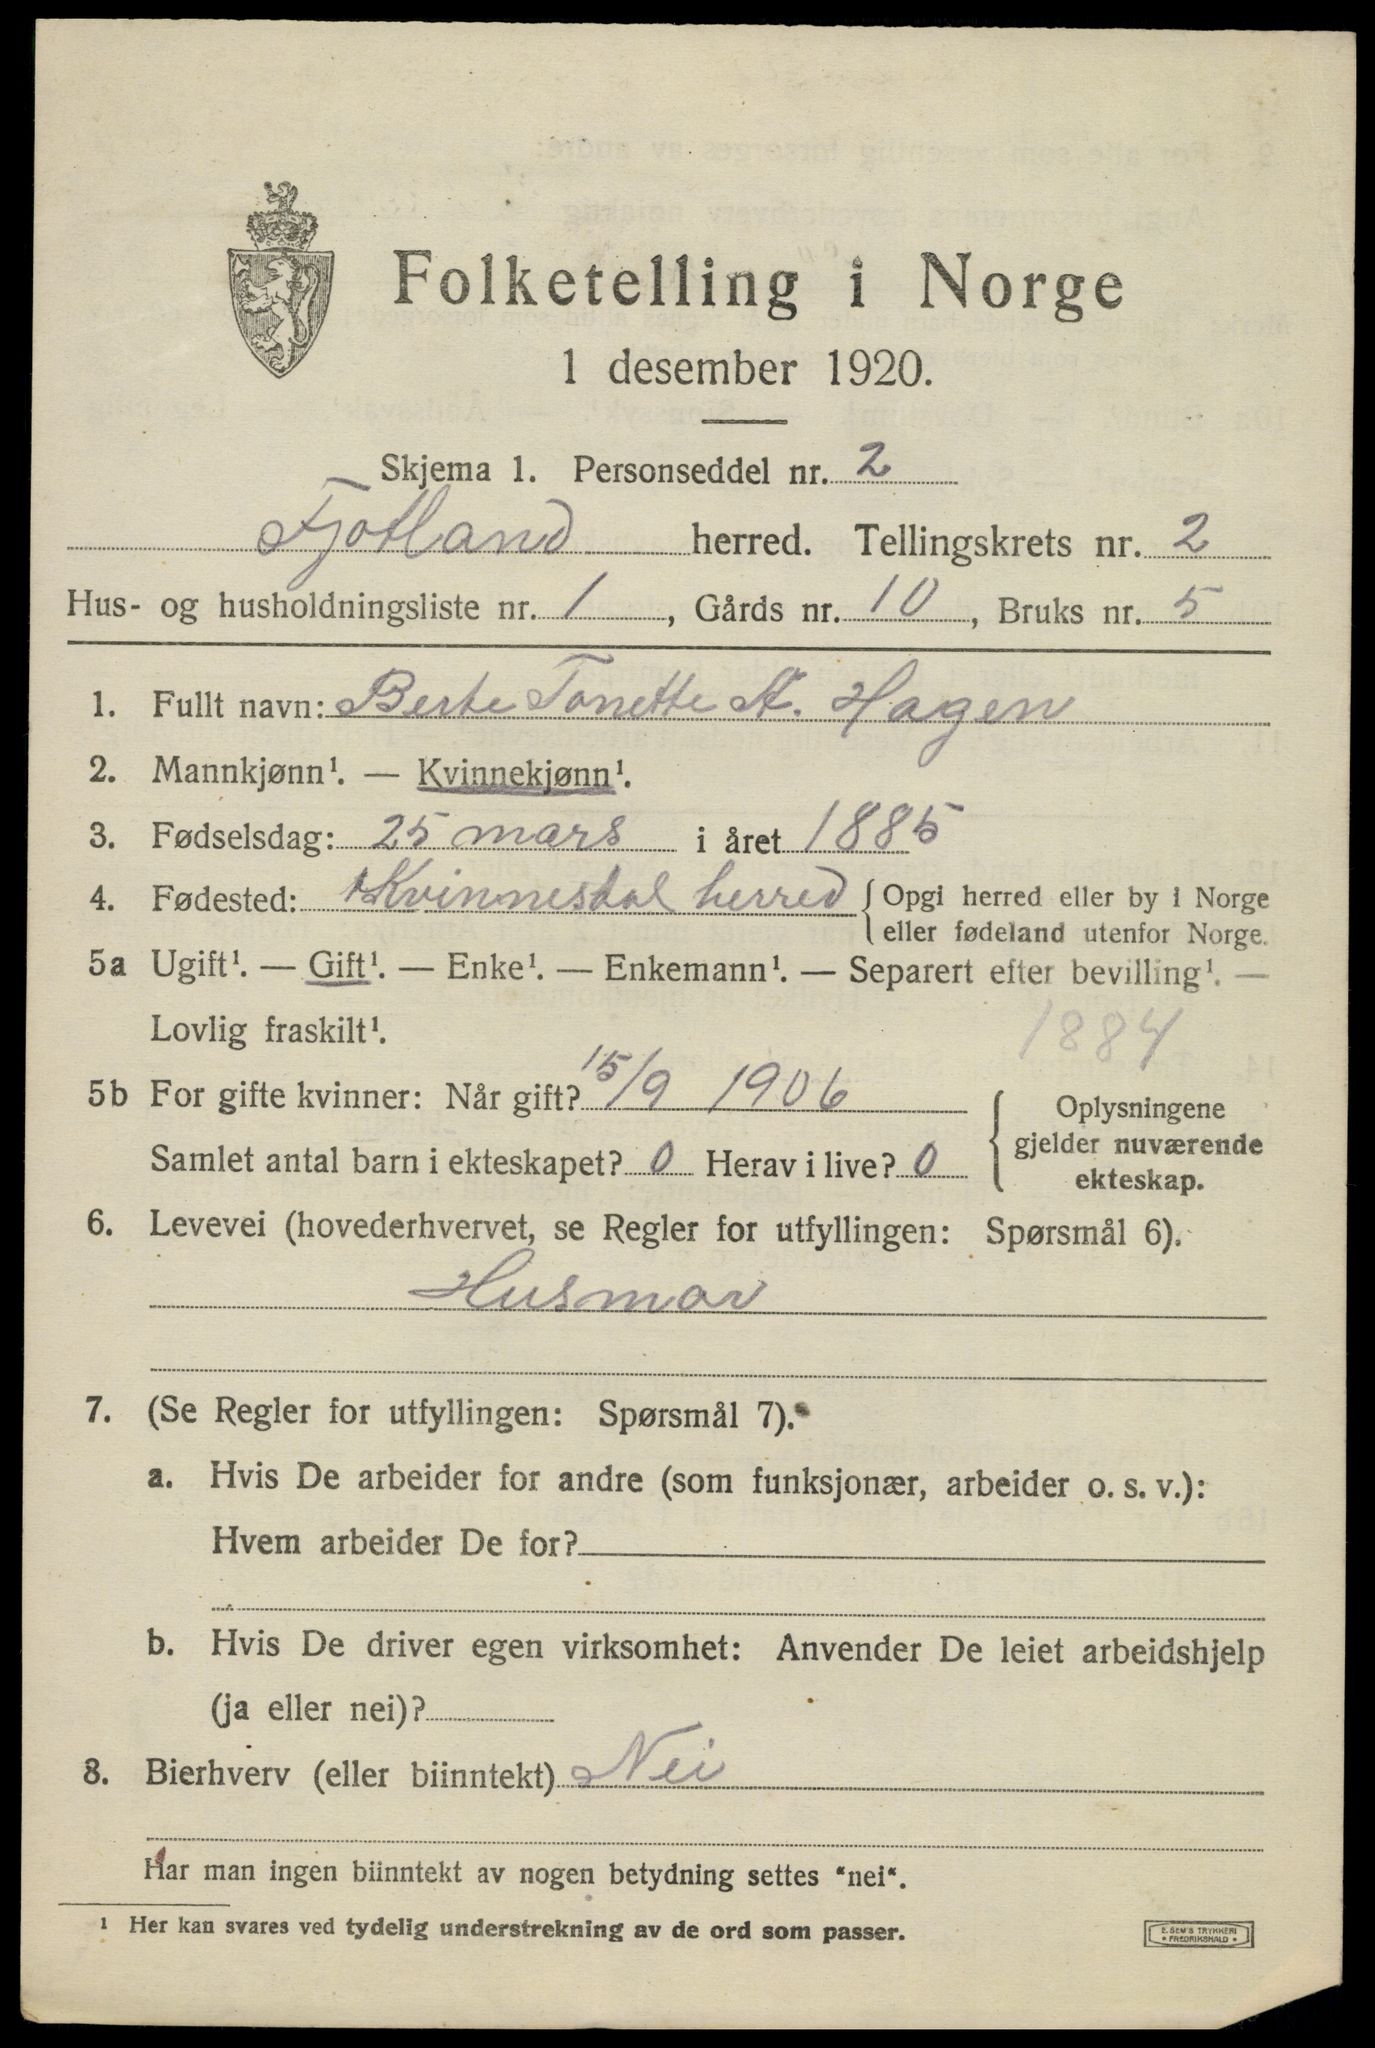 Folketelling i Norge
1 desember 1920.
Skjema 1. Personseddel nr. 2
Fjotland herred. Tellingskrets nr. 2
Hus- og husholdningsliste nr. 1, Gårds nr. 10, Bruks nr. 5
1. Fullt navn: Berte Tonette A. Hagen
2. Mannkjønn¹. — Kvinnekjønn¹.
3. Fødselsdag: 25 mars i året 1885
4. Fødested: Kvinnesdal herred { Opgi herred eller by i Norge
eller fødeland utenfor Norge.
5a Ugift¹. — Gift¹. — Enke¹. — Enkemann¹. — Separert efter bevilling¹. —
Lovlig fraskilt¹. 1884
5b For gifte kvinner: Når gift? 15/9 1906 { Oplysningene
gjelder nuværende
Samlet antal barn i ekteskapet? 0 Herav i live? 0
ekteskap.
6. Levevei (hovederhvervet, se Regler for utfyllingen: Spørsmål 6).
Husmor
7. (Se Regler for utfyllingen: Spørsmål 7).
a. Hvis De arbeider for andre (som funksjonær, arbeider o. s. v.):
Hvem arbeider De for?
b. Hvis De driver egen virksomhet: Anvender De leiet arbeidshjelp
(ja eller nei)?
8. Bierhverv (eller biinntekt) Nei
Har man ingen biinntekt av nogen betydning settes "nei".
¹ Her kan svares ved tydelig understrekning av de ord som passer.
E. SEM'S TRYKKERI
• FREDRIKSHALD •